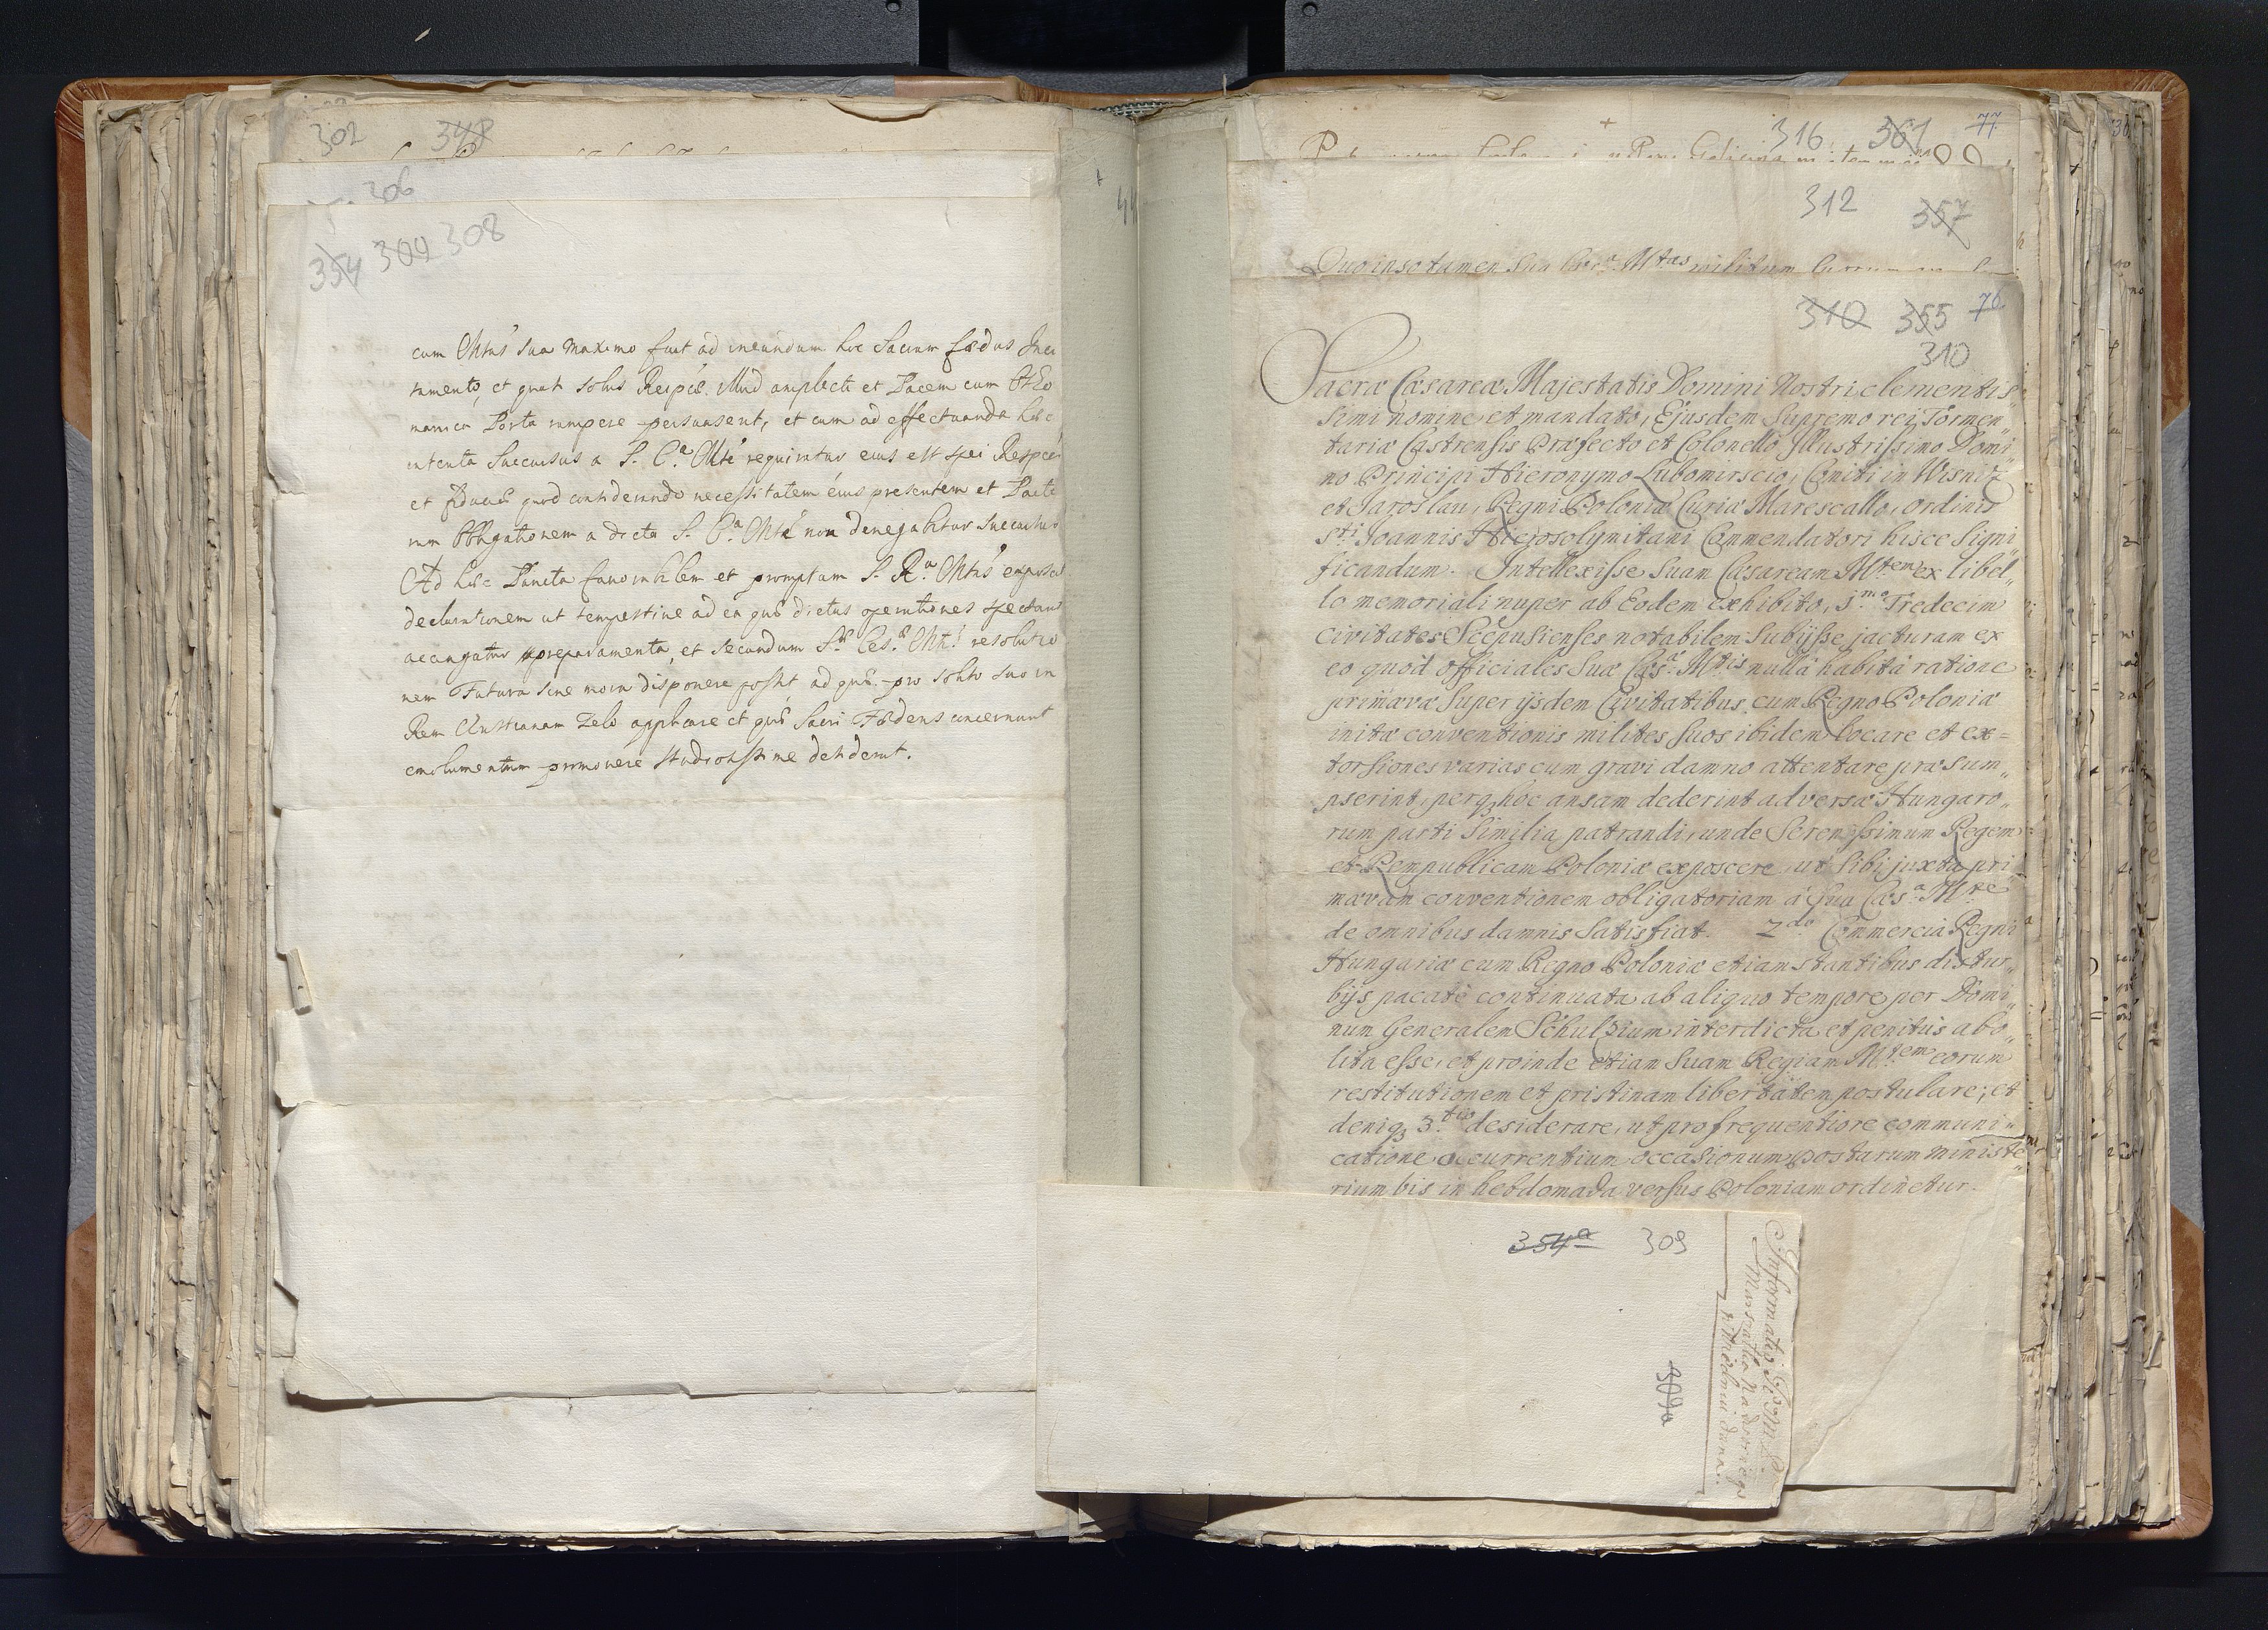 302 348
306
354 304 308
cum Mtas sua maximo fuit ad ineundum hoc Sacrum foedus Inci
tamento, et quat solus Respcae. illud amplecti et Pacem cum Otto
manica Porta rumpere persuasent, et cum ad effectuanda haec
intenta Succursus a S. C.a Mte requiratur eius est spei Respca
et fiduciae quod considerando necessitatem eius presentem et Pacto
rum Obligationem a dicta S. C.a Mte non denegabitur Succursus
Ad haec Puncta favorabilem et promptam S. R.a Mtas exposcit
declarationem ut tempestive ad ea quae dictas operationes spectant
accingatur preparamenta, et secundum S.ae Ces.ae Mtis resolutio
nem Futura sine mora disponere possit ad quae pro solito suo in
Rem Christianam zelo applicare et quae Sacri Foederis concernunt
emolumentum promovere studiosissime desiderat.
316 361 77.
312 357
Quo ipso tamen Sua Caes.a Mtas militum
310 355 76.
310
Sacrae Caesareae Majestatis Domini Nostri clementis„
simi nomine et mandato, Ejusdem Supremo rei Tormen„
tariae Castrensis Praefecto et Colonello Illustrissimo Domi„
no Principi Hieronymo Lubomirscio, Comiti in Wisnitz
et Jaroslau, Regni Poloniae Curiae Marescallo, ordinis
Sti Joannis Hierosolymitani Commendatori hisce Signi„
ficandum. Intellexisse Suam Caesaream Mtem ex libel„
lo memoriali nuper ab Eodem exhibito, 1mo Tredecim
civitates Scepusienses notabilem subijsse jacturam ex
eo quod officiales Suae Caes.ae Mtis nullâ habitâ ratione
primaevae super ijsdem Civitatibus cum Regno Poloniae
initae conventionis milites suos ibidem locare et ex=
torsiones varias cum gravi damno attentare praesum„
pserint, perq; hoc ansam dederint adversae Hungaro„
rum parti similia patrandi, unde Serenissimum Regem
et Rempublicam Poloniae exposcere, ut sibi juxta pri„
maevam conventionem obligatoriam à Sua Caes.a Mte
de omnibus damnis satisfiat. 2do Commercia Regni
Hungariae cum Regno Poloniae etiam stantibus distur„
bijs pacatè continuata ab aliquo tempore per Domi„
num Generalem Schulzium interdicta et penitùs abo„
lita esse, et proinde etiam Suam Regiam Mtem eorum
restitutionem et pristinam libertatem postulare; et
deniq; 3tio desiderare, ut pro frequentiore communi„
catione occurrentium occasionum postarum ministe„
rium bis in hebdomada versus Poloniam ordinetur.
354a 309
309a